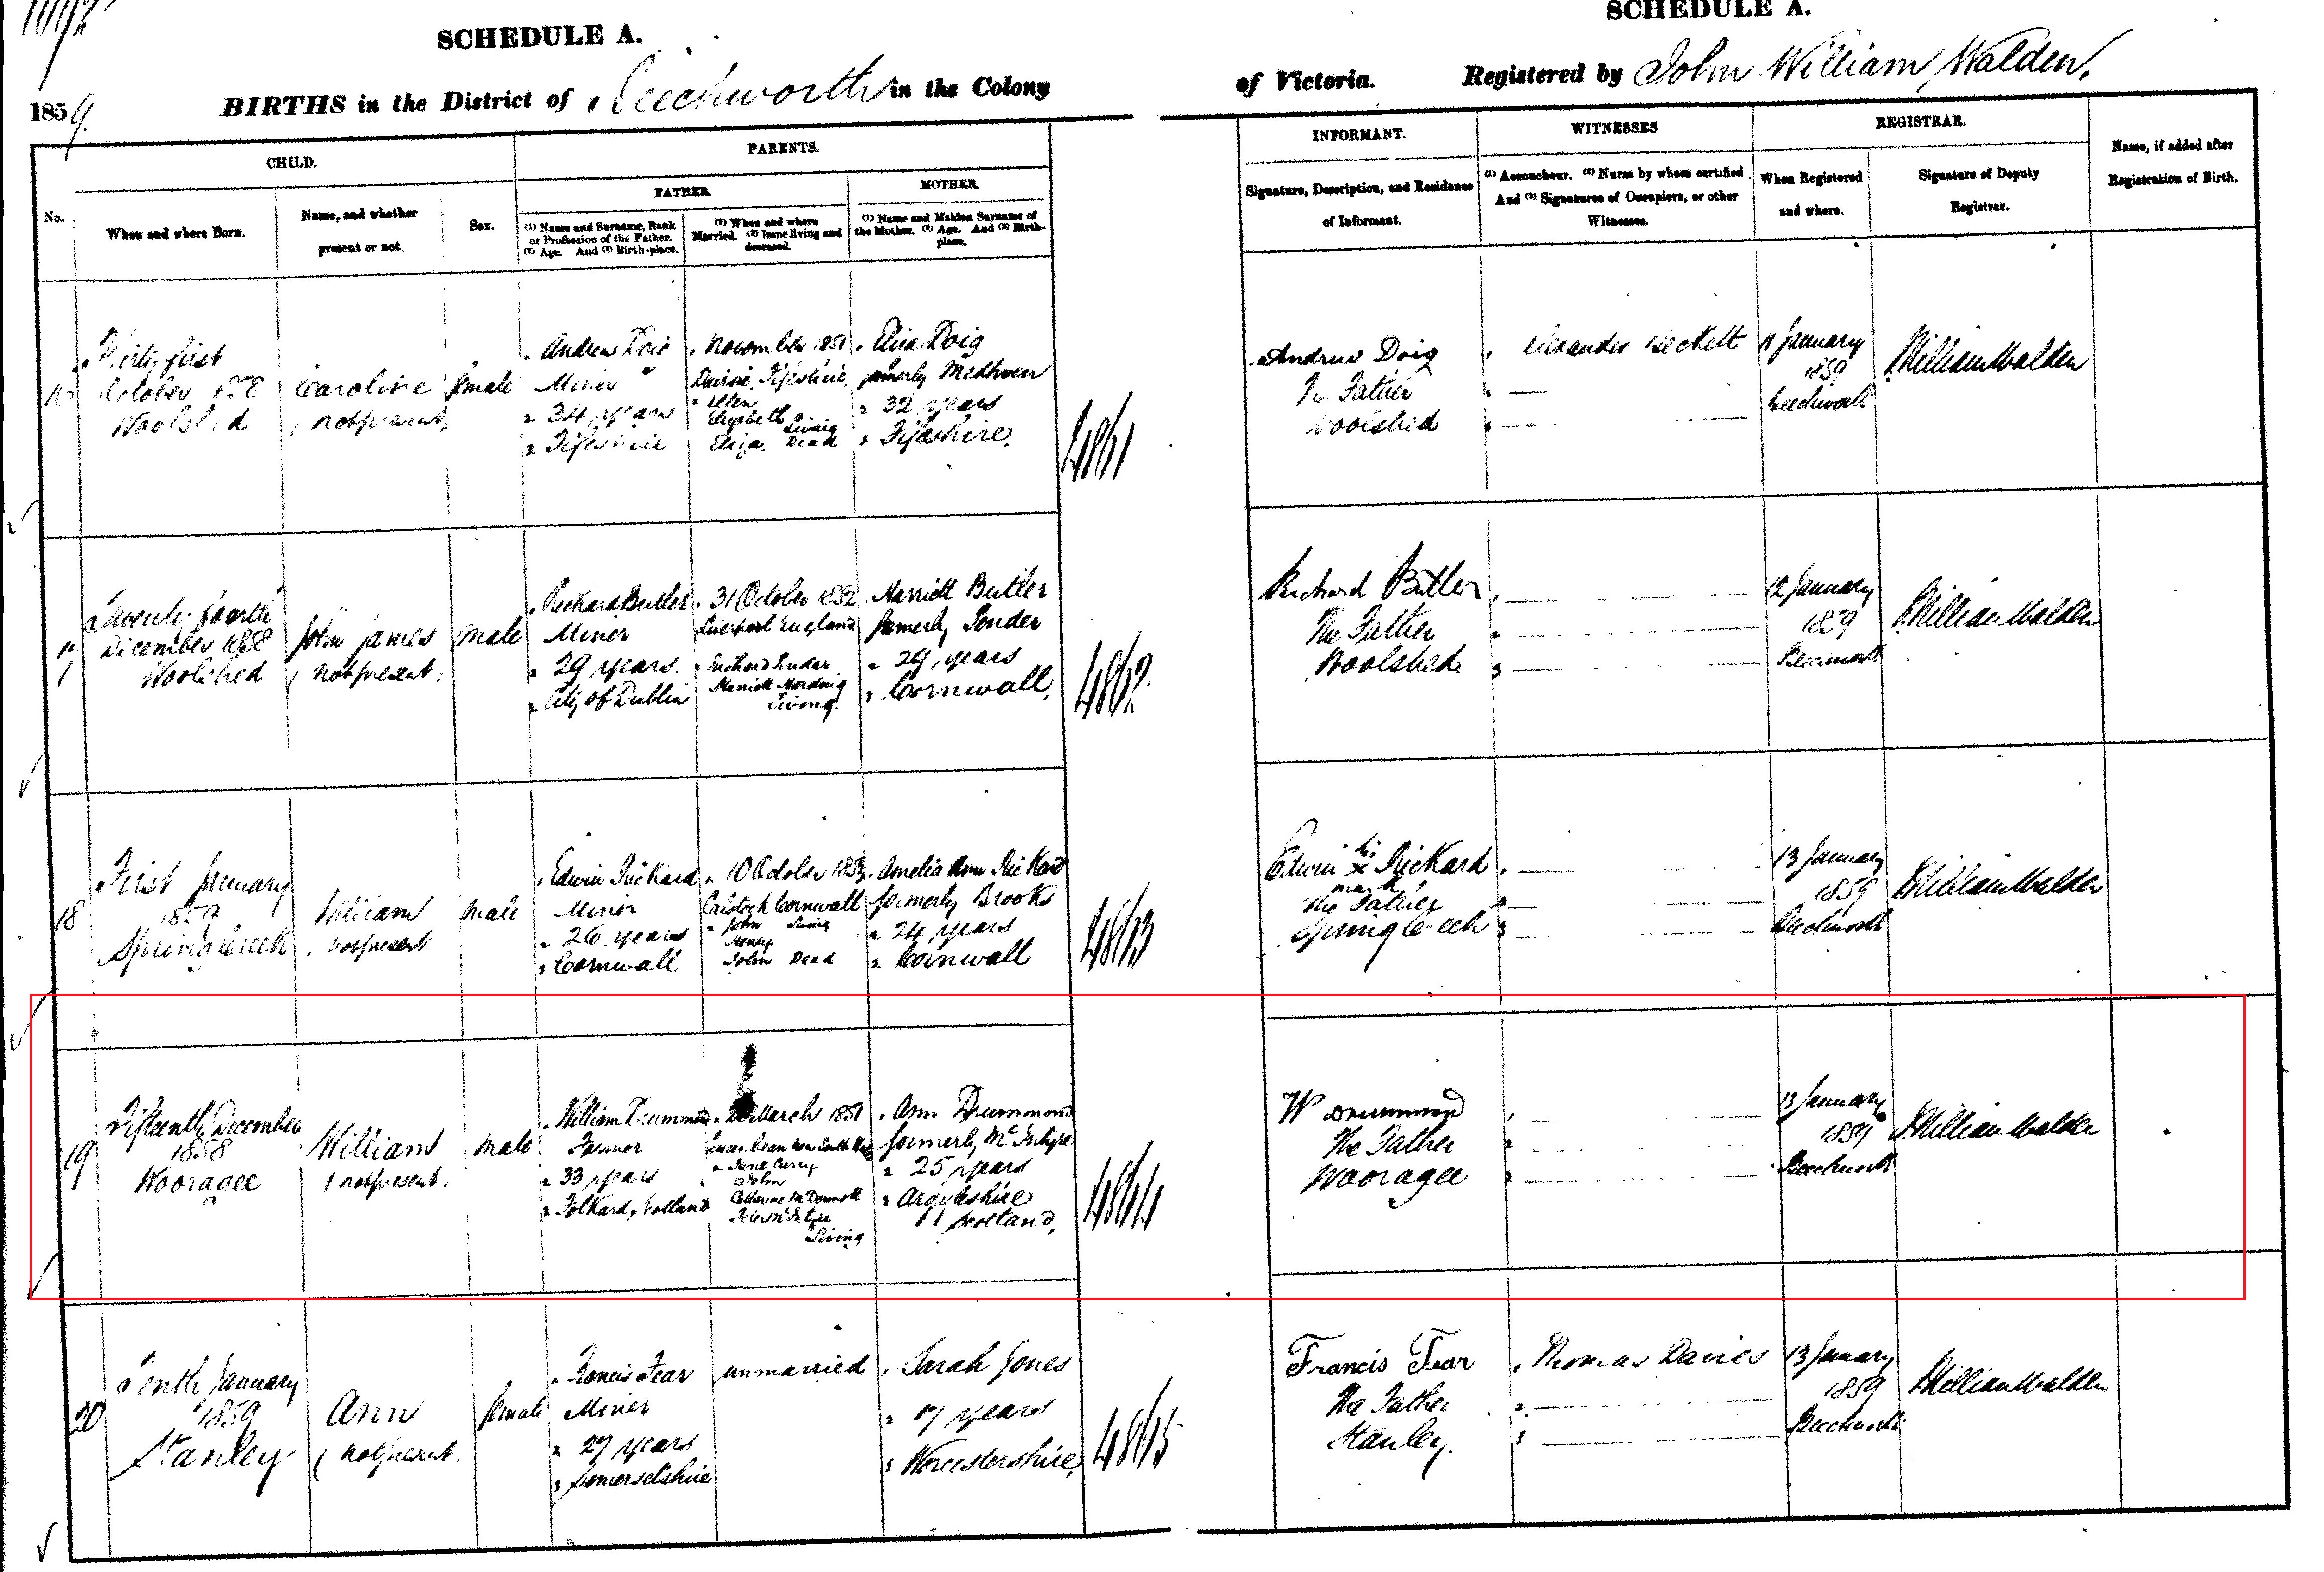 SCHEDULE A.
1859.
BIRTHS in the District of Beechworth in the Colony
No.
CHILD.
When and where Born.
Name, and whether
present or not.
Sex.
PARENTS.
FATHER
(1) Name and Surname, Rank
or Profession of the Father.
(2) Age. And (3) Birth-place.
(1) When and where
Married. (2) Issue living and
deceased.
MOTHER.
(1) Name and Maiden Surname of
the Mother. (2) Age. And (3) Birth-
place.
October
Woolshed
Caroline
not present
female
Miner
34 years
Fifeshire
November 1851
Ellen
Elizabeth
Living
Eliza Dead
Eliza Doig
formerly Methven
32 years
Fifeshire.
4861
Twenty fourth
December 1858
Woolshed
John James
not present
male
Richard Butler
Miner
29 years
City of Dublin
31 October 1852
Liverpool England
Living
Harriett Butler
formerly
29 years
Cornwall.
4862
18
First January
1859
Spring Creek
William
not present
male
Edwin Rickard
Miner
26 years
Cornwall
10 October 1853
Cornwall
John Living
Henry
John Dead
Amelia Ann Rickard
formerly Brooks
24 years
Cornwall
4863
19
Fifteenth December
1858
Wooragee
William
not present.
male
William Drummond
Farmer
33 years
Scotland
March 1851
New South Wales
John
Catherine McDermott
Peter McIntyre
Living
Ann Drummond
formerly McIntyre
25 years
Argyleshire
Scotland.
4864
20
Tenth January
1859
Stanley
Ann
not present.
female
Francis Fear
Miner
27 years
Somersetshire
unmarried
Sarah Jones
17 years
Worcestershire.
4865
SCHEDULE A.
of Victoria. Registered by John William Walden.
INFORMANT.
Signature, Description, and Residence
of Informant.
WITNESSES
(1) Accoucheur. (2) Nurse by whom certified.
And (3) Signatures of Occupiers, or other
Witnesses.
REGISTRAR.
When Registered
and where.
Signature of Deputy
Registrar.
Name, if added after
Registration of Birth.
Andrew Doig
The Father
Woolshed
Alexander Beckett
11 January
1859
Beechworth
J William Walden
Richard Butler
The Father
Woolshed.
12 January
1859
Beechworth
J William Walden
his
Edwin x Rickard
mark
The Father
Spring Creek
13 January
1859
Beechworth
J William Walden
W Drummond
The Father
Wooragee
13 January
1859
Beechworth
J William Walden
Francis Fear
The Father
Stanley.
Thomas Davies
13 January
1859
Beechworth
J William Walden